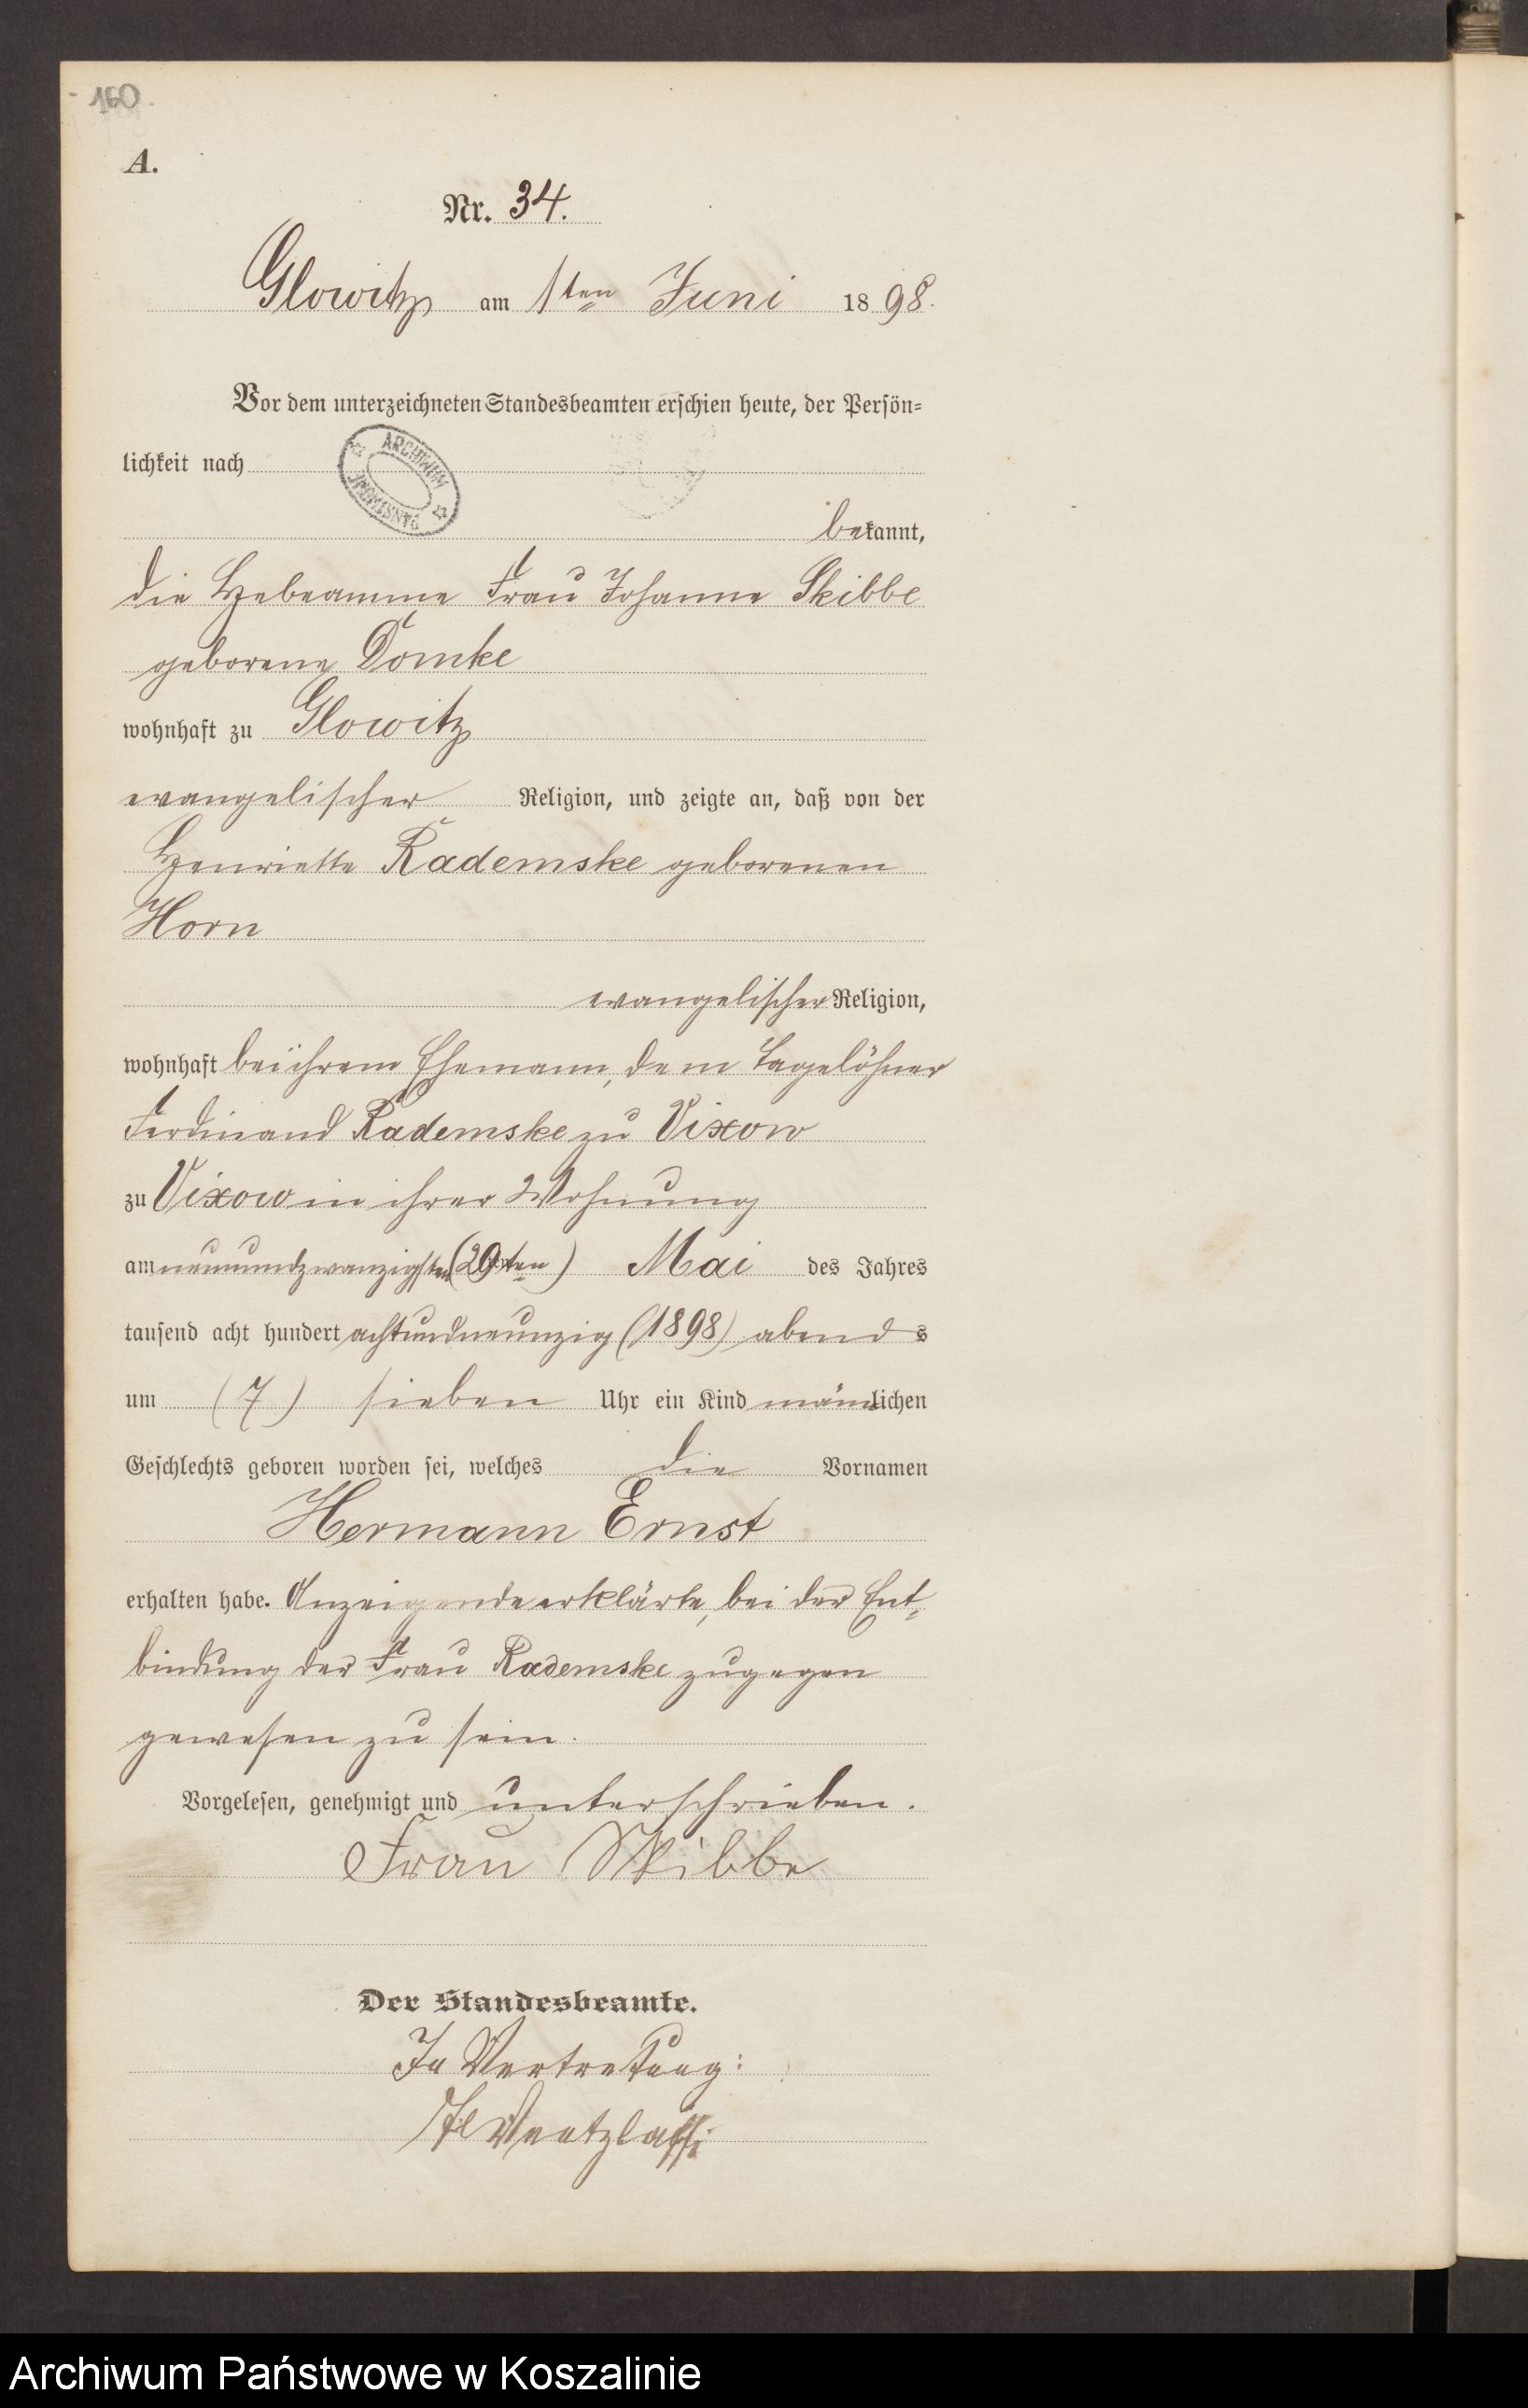 160.
A.
Nr. 34.
Glowitz am 1ten Juni 1898.
Vor dem unterzeichneten Standesbeamten erschien heute, der Persön=
lichkeit nach
ARCHIWUM
PAŃSTWOWE
bekannt,
die Hebeamme Frau Johanne Skibbe
geborene Domke
wohnhaft zu Glowitz
evangelischer Religion, und zeigte an, daß von der
Henriette Rademske geborenen
Horn
evangelischer Religion,
wohnhaft bei ihrem Ehemann, dem Tagelöhner
Ferdinand Rademske zu Vixow
zu Vixow in ihrer Wohnung
am neunundzwanzigsten (29ten) Mai des Jahres
tausend acht hundert achtundneunzig (1898) abends
um (7) sieben Uhr ein Kind männlichen
Geschlechts geboren worden sei, welches die Vornamen
Hermann Ernst
erhalten habe. Anzeigende erklärte, bei der Ent=
bindung der Frau Rademske zugegen
gewesen zu sein.
Vorgelesen, genehmigt und unterschrieben.
Frau Skibbe
Der Standesbeamte.
In Vertretung:
Ventzlaff
Archiwum Państwowe w Koszalinie